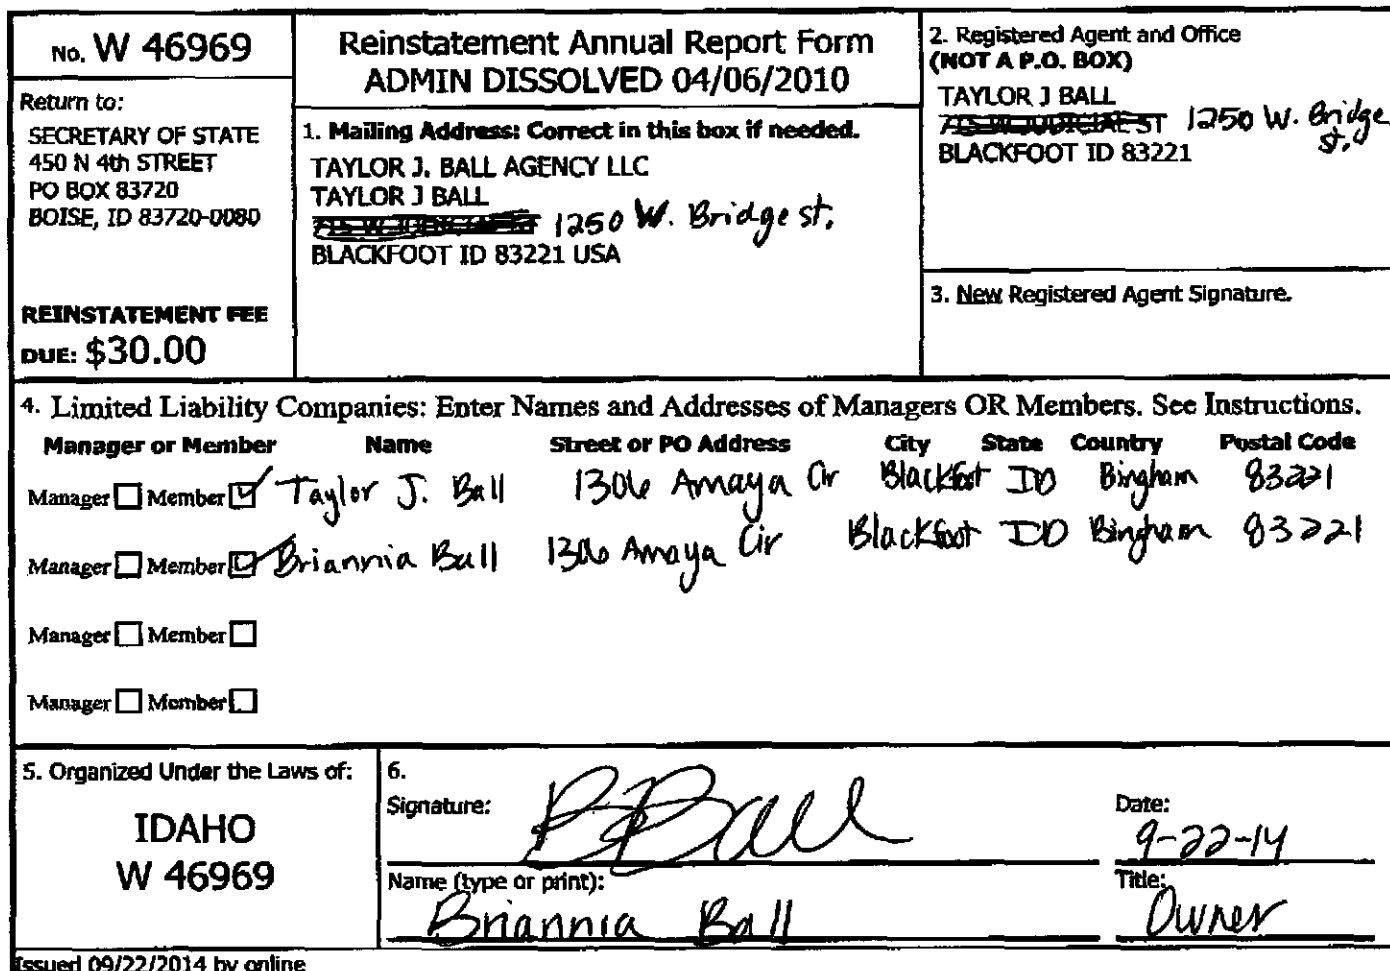 No. W 46969
Return to:
SECRETARY OF STATE
450 N 4th STREET
PO BOX 83720
BOISE, ID 83720-0080
REINSTATEMENT FEE
DUE: $30.00
Reinstatement Annual Report Form
ADMIN DISSOLVED 04/06/2010
1. Mailing Address: Correct in this box if needed.
TAYLOR J. BALL AGENCY LLC
TAYLOR J BALL
1250 W. Bridge st.
BLACKFOOT ID 83221 USA
2. Registered Agent and Office
(NOT A P.O. BOX)
TAYLOR J BALL
715 W JUDICIAL ST 1250 W. Bridge
st.
BLACKFOOT ID 83221
3. New Registered Agent Signature.
4. Limited Liability Companies: Enter Names and Addresses of Managers OR Members. See Instructions.
Manager or Member Name Street or PO Address City State Country Postal Code
Manager Member Taylor J. Ball 1306 Amaya Cir Blackfoot ID Bingham 83221
Manager Member Briannia Ball 1306 Amaya Cir Blackfoot ID Bingham 83221
Manager Member
Manager Member
5. Organized Under the Laws of:
IDAHO
W 46969
6.
Signature: B Ball
Date:
9-22-14
Name (type or print):
Briannia Ball
Title:
Owner
Issued 09/22/2014 by online